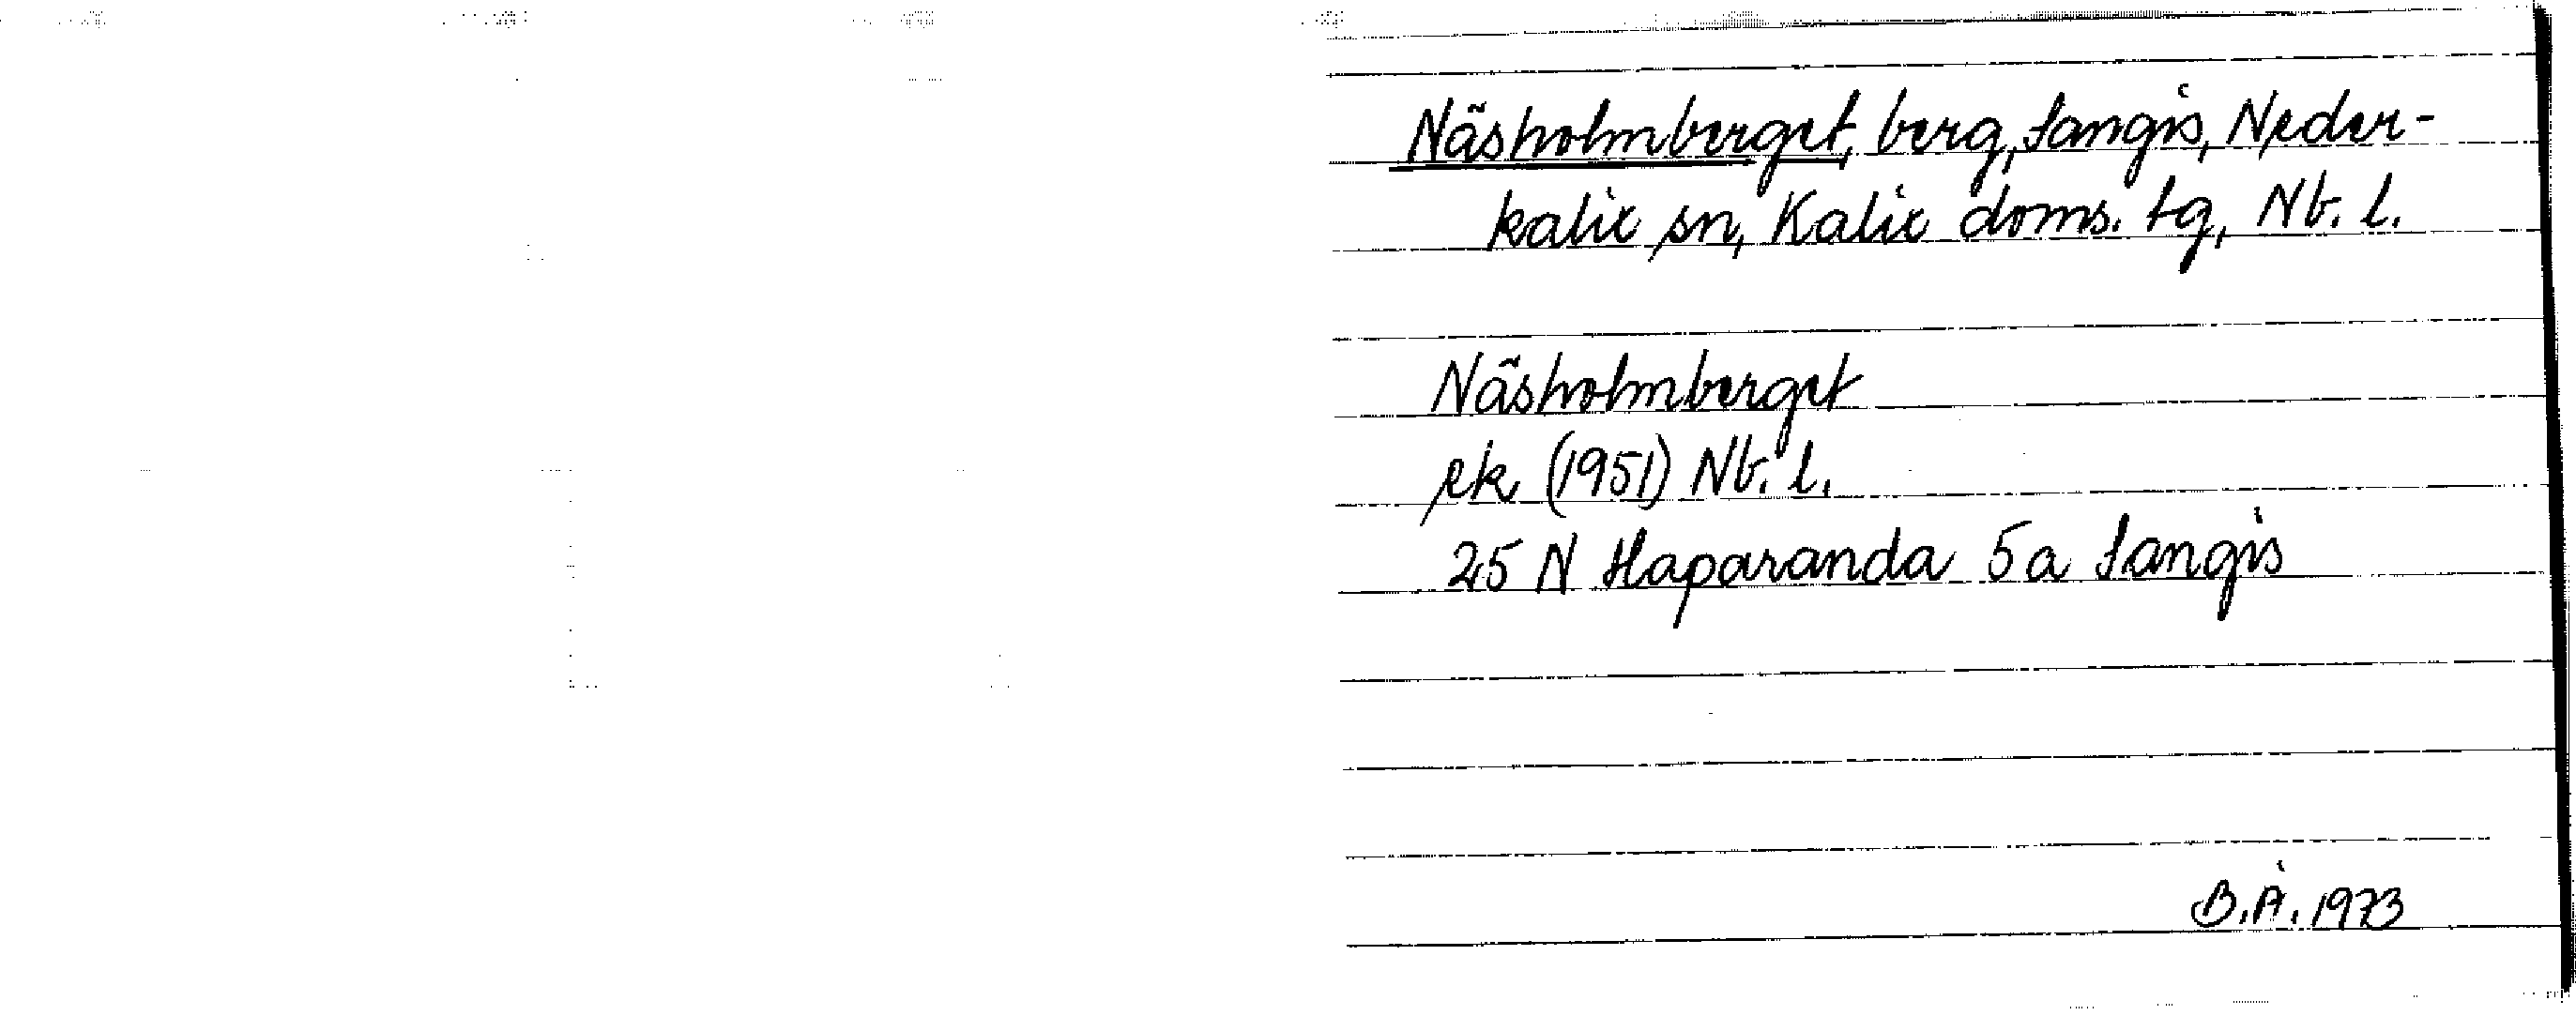 Näsholmberget, berg, Sangis, Neder-
kalix sn, Kalix doms. tg, Nb. l.
Näsholmberget
ek (1951) Nb. l.
25 N Haparanda 5a Sangis
B.Å. 1973